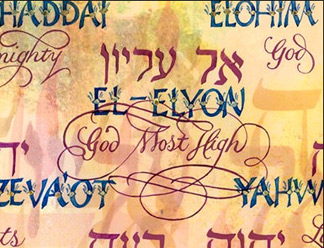 HADDAI ELOHIM
mighty God
אל עליון
EL-ELYON
God Most High
ZEVA'OT YAHW
יהוה